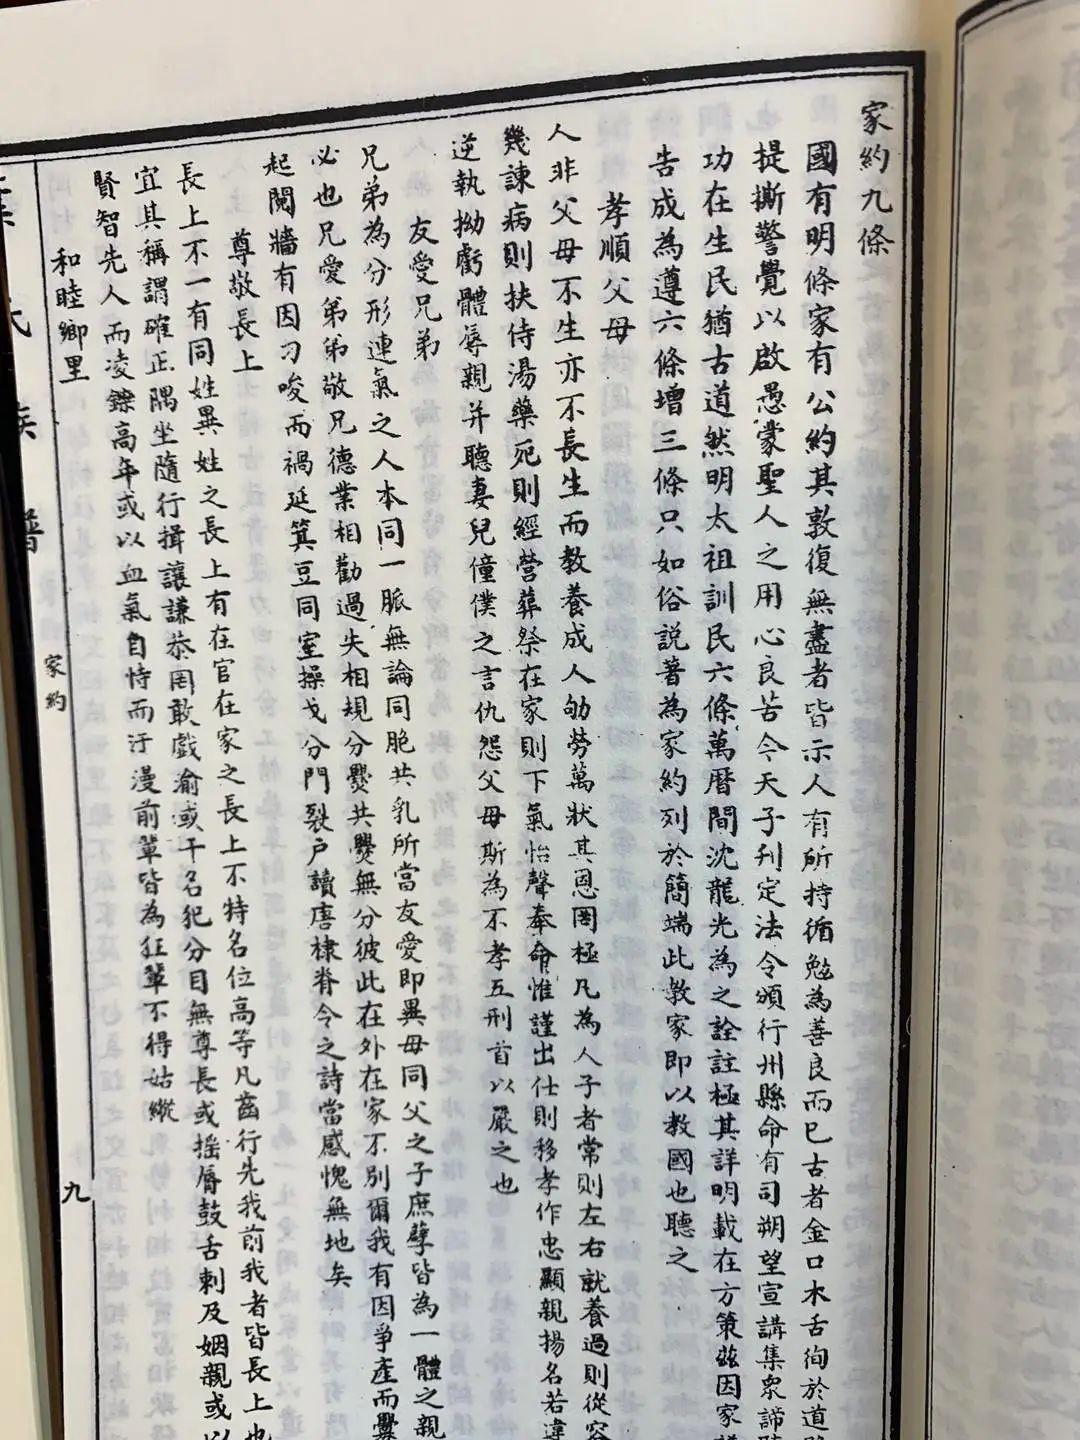 家約九條
國有明條家有公約其敦復無盡者皆示人有所持循勉為善良而已古者金口木舌徇於道
提撕警覺以啟愚蒙聖人之用心良苦今天子刊定法令頒行州縣命有司朔望宣講集衆諦
功在生民猶古道然明太祖訓民六條萬曆間沈龍光為之詮註極其詳明載在方策茲因家
告成為遵六條增三條只如俗説著為家約列於簡端此教家即以教國也聽之
孝順父母
人非父母不生亦不長生而教養成人劬勞萬狀其恩罔極凡為人子者常則左右就養過則從容
幾諫病則扶侍湯藥死則經營葬祭在家則下氣怡聲奉命惟謹出仕則移孝作忠顯親揚名若違
逆執拗虧體辱親并聽妻兒僮僕之言仇怨父母斯為不孝五刑首以嚴之也
友愛兄弟
兄弟為分形連氣之人本同一脈無論同胞共乳所當友愛即異母同父之子庶孽皆為一體之親
必也兄愛弟弟敬兄德業相勸過失相規分爨共爨無分彼此在外在家不別爾我有因爭產而釁
起鬩牆有因刁唆而禍延箕豆同室操戈分門裂戶讀唐棣脊令之詩當感愧無地矣
尊敬長上
長上不一有同姓異姓之長上有在官在家之長上不特名位高等凡齒行先我前我者皆長上也
宜其稱謂確正隅坐隨行揖讓謙恭罔敢戲渝或干名犯分目無尊長或搖脣鼓舌刺及姻親或以
賢智先人而凌鑠高年或以血氣自恃而汙漫前輩皆為狂輩不得姑縱
和睦鄉里
氏族譜
家約
九